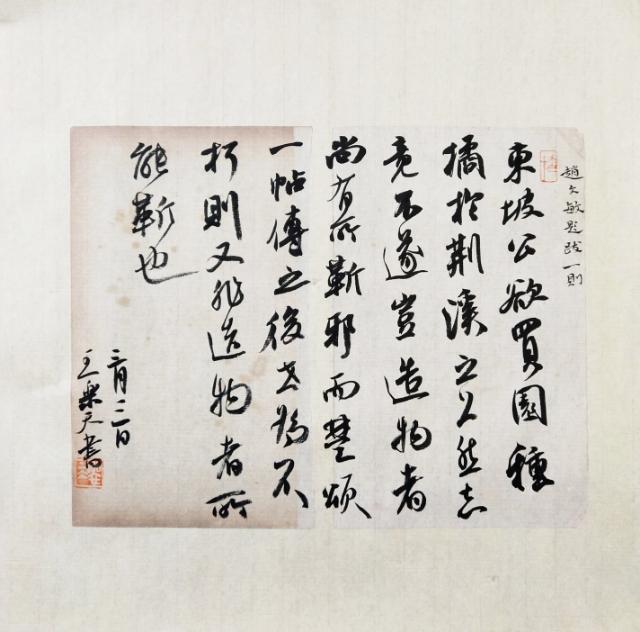 趙文敏題跋一則
東坡公欲買園種
橘於荆溪之上然志
竟不遂豈造物者
尚有所靳邪而楚頌
一帖傳之後世為不
朽則又非造物者所
能靳也
王樂天書